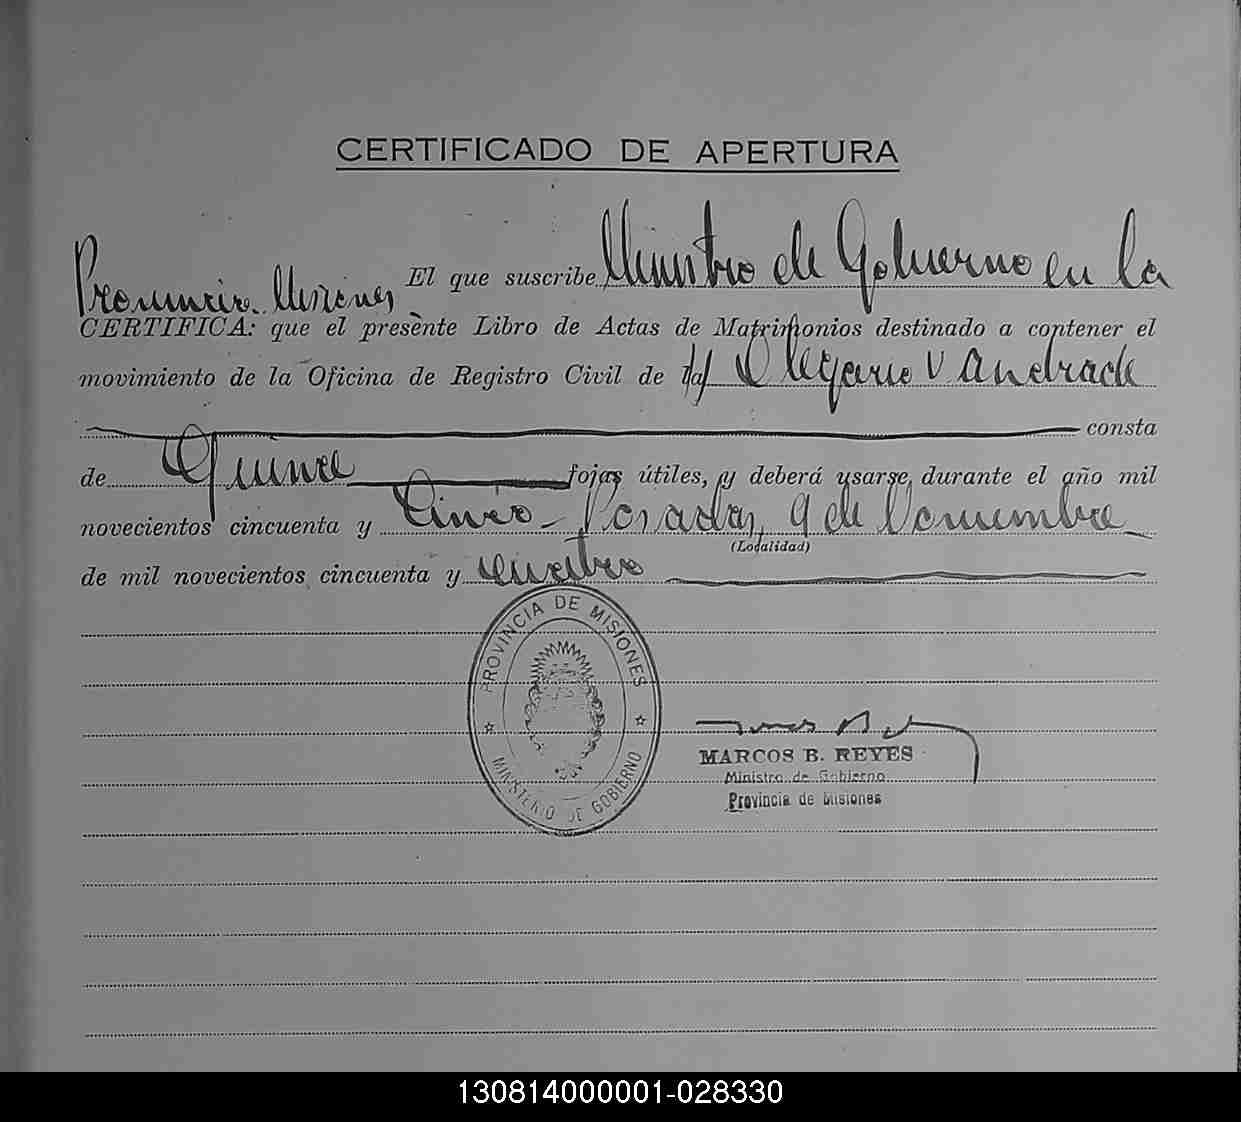 CERTIFICADO DE APERTURA
El que suscribe Ministro de Gobierno en la
Provincia Misiones
CERTIFICA: que el presente Libro de Actas de Matrimonios destinado a contener el
movimiento de la Oficina de Registro Civil de la Olegario V Andrade
consta
de Quince fojas útiles, y deberá usarse durante el año mil
novecientos cincuenta y Cinco - Posadas, 9 de Noviembre
(Localidad)
de mil novecientos cincuenta y cuatro
PROVINCIA DE MISIONES
MINISTERIO DE GOBIERNO
MARCOS B. REYES
Ministro de Gobierno
Provincia de Misiones
130814000001-028330